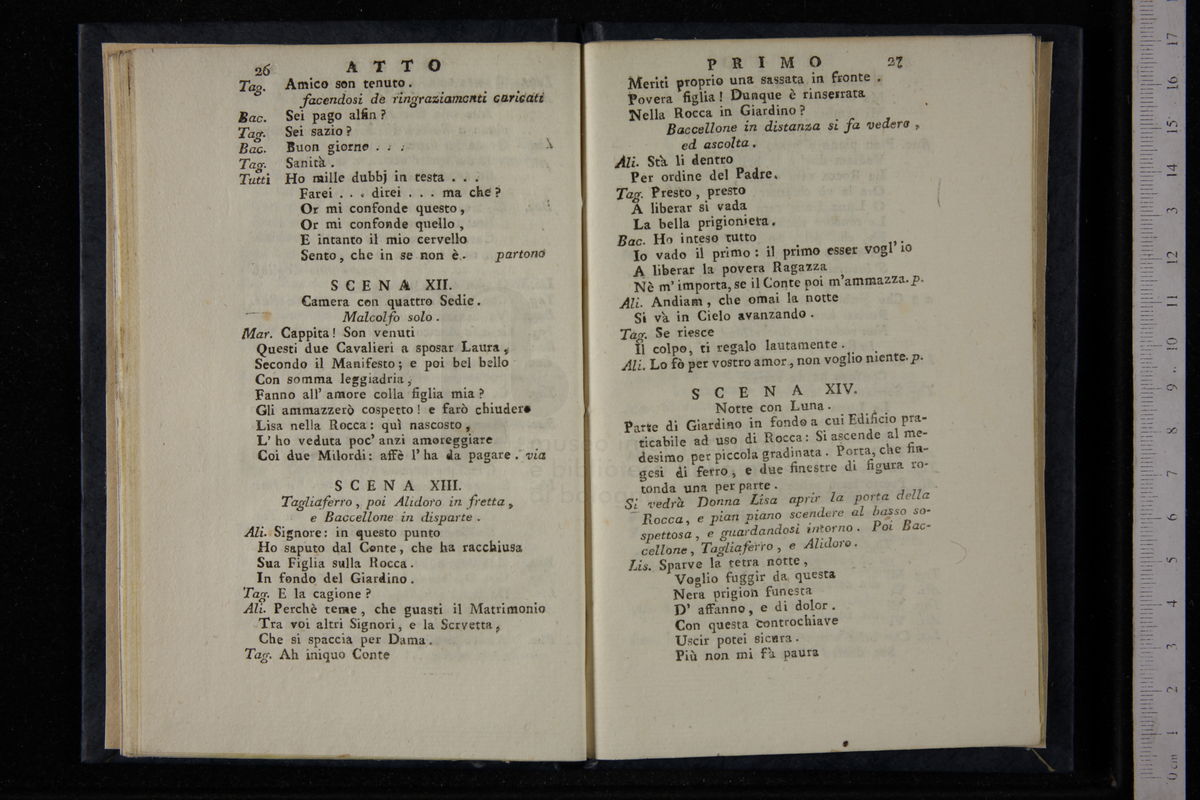 26 ATTO
Tag. Amico son tenuto.
facendosi de ringraziamenti caricati
Bac. Sei pago alfin?
Tag. Sei sazio?
Bac. Buon giorno . . .
Tag. Sanità.
Tutti Ho mille dubbj in testa . . .
Farei . . . direi . . . ma chè?
Or mi confonde questo,
Or mi confonde quello,
E intanto il mio cervello
Sento, che in se non è. partono
SCENA XII.
Camera con quattro Sedie.
Malcolfo solo.
Mar. Cappita! Son venuti
Questi due Cavalieri a sposar Laura,
Secondo il Manifesto; e poi bel bello
Con somma leggiadria,
Fanno all' amore colla figlia mia?
Gli ammazzerò cospetto! e farò chiudere
Lisa nella Rocca: quì nascosto,
L' ho veduta poc' anzi amoreggiare
Coi due Milordi: affè l' ha da pagare. via
SCENA XIII.
Tagliaferro, poi Alidoro in fretta,
e Baccellone in disparte.
Ali. Signore: in questo punto
Ho saputo dal Conte, che ha racchiusa
Sua Figlia sulla Rocca.
In fondo del Giardino.
Tag. E la cagione?
Ali. Perchè teme, che guasti il Matrimonio
Tra voi altri Signori, e la Servetta,
Che si spaccia per Dama.
Tag. Ah iniquo Conte
PRIMO 27
Meriti proprio una sassata in fronte.
Povera figlia! Dunque è rinserrata
Nella Rocca in Giardino?
Baccellone in distanza si fa vedere,
ed ascolta.
Ali. Stà lì dentro
Per ordine del Padre.
Tag. Presto, presto
A liberar si vada
La bella prigioniera.
Bac. Ho inteso tutto
Io vado il primo: il primo esser vogl' io
A liberar la povera Ragazza
Nè m' importa, se il Conte poi m'ammazza. p.
Ali. Andiam, che omai la notte
Si và in Cielo avanzando.
Tag. Se riesce
Il colpo, ti regalo lautamente.
Ali. Lo fò per vostro amor, non voglio niente. p.
SCENA XIV.
Notte con Luna.
Parte di Giardino in fondo a cui Edificio pra-
ticabile ad uso di Rocca: Si ascende al me-
desimo per piccola gradinata. Porta, che fin-
gesi di ferro, e due finestre di figura ro-
tonda una per parte.
Si vedrà Donna Lisa aprir la porta della
Rocca, e pian piano scendere al basso so-
spettosa, e guardandosi intorno. Poi Bac-
cellone, Tagliaferro, e Alidoro.
Lis. Sparve la tetra notte,
Voglio fuggir da questa
Nera prigion funesta
D' affanno, e di dolor.
Con questa controchiave
Uscir potei sicura.
Più non mi fà paura